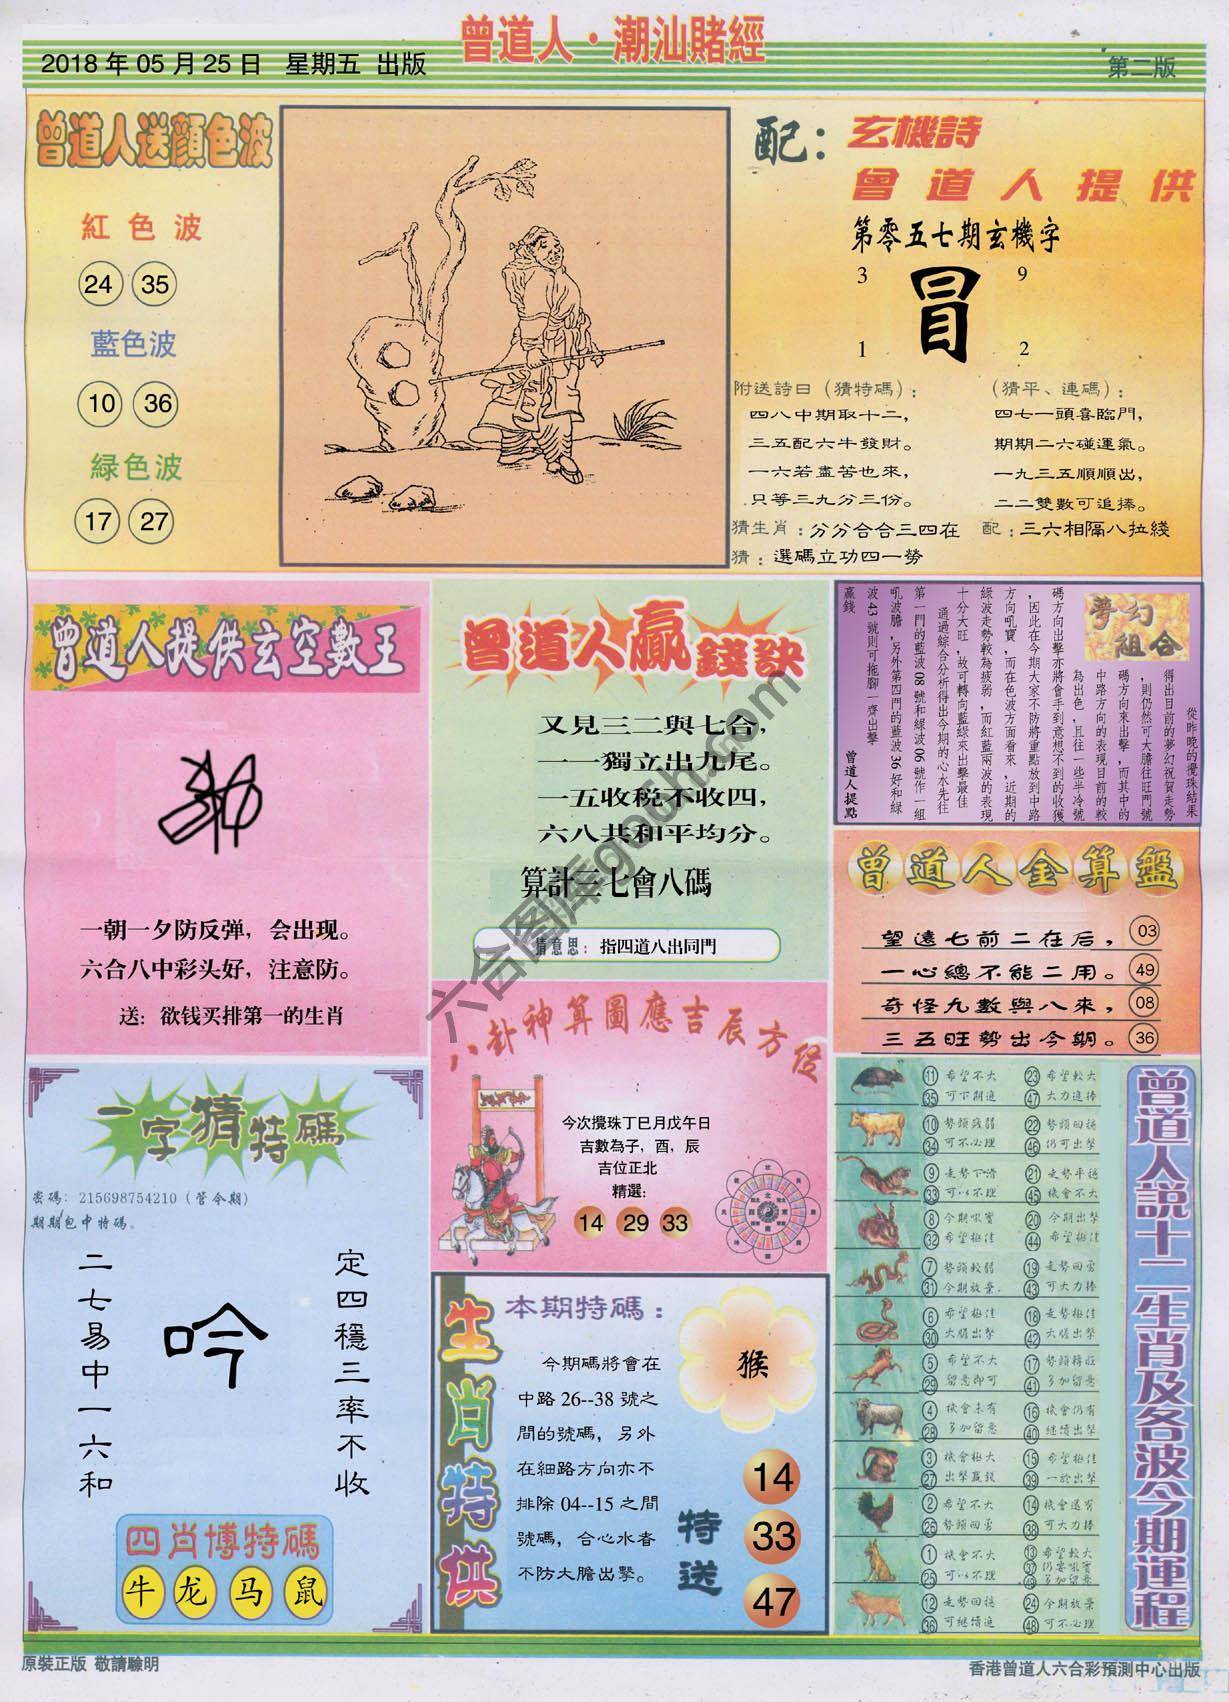 曾道人·潮汕賭經
2018年05月25日 星期五 出版
第二版
曾道人送顏色波
紅色波
24 35
藍色波
10 36
緑色波
17 27
配：
玄機詩
曾道人提供
第零五七期玄機字
3 9
冒
1 2
附送詩曰（猜特碼）：
四八中期取十二，
三五配六牛發財。
一六若盡苦也來，
只等三九分三份。
（猜平、連碼）：
四七一頭喜臨門，
期期二六碰運氣。
一九三五順順出，
二二雙數可追捧。
猜生肖：分分合合三四在
配：三六相隔八拉綫
猜：選碼立功四一勞
曾道人提供玄空數王
一朝一夕防反弹，会出现。
六合八中彩头好，注意防。
送：欲钱买排第一的生肖
曾道人贏錢訣
又見三二與七合，
一一獨立出九尾。
一五收税不收四，
六八共和平均分。
算計三七會八碼
猜意思：指四道八出同門
夢幻組合
從昨晚的攪珠結果
得出目前的夢幻祝賀走勢
，則仍然可大膽往旺門號
碼方向來出擊，而其中的
中路方向的表現目前的較
為出色，且往一些半冷號
碼方向出擊亦將會手到意想不到的收獲
，因此在今期大家不防將重點放到中路
方向吼寶，而在色波方面看來，近期的
綠波走勢較為疲弱，而紅藍兩波的表現
十分大旺，故可轉向藍綠來出擊最佳
通過綜合分析得出今期的心水先往
第一門的藍波08號和緑波06號作一組
吼波膽，另外第四門的藍波36好和緑
波43號則可拖腳一齊出擊
贏錢
曾道人提點
曾道人金算盤
望遠七前二在后， 03
一心總不能二用。 49
奇怪九數與八來， 08
三五旺勢出今期。 36
八卦神算圖應吉辰方位
今次攪珠丁巳月戊午日
吉數為子，酉，辰
吉位正北
精選：
14 29 33
一字猜特碼
密碼：215698754210（管今期）
期期包中特碼。
定四穩三率不收
吟
二七易中一六和
四肖博特碼
牛 龙 马 鼠
生肖特供
本期特碼：
今期碼將會在
中路26--38號之
間的號碼，另外
在細路方向亦不
排除04--15之間
號碼，合心水者
不防大膽出擊。
猴
特送
14
33
47
曾道人説十二生肖及各波今期運程
11 希望不大 23 希望較大
35 可下期追 47 大力追捧
10 勢頭殘弱 22 勢頭回穩
34 可不必理 46 仍可出擊
9 走勢下滑 21 走勢平穩
33 可以不理 45 機會不大
8 今期吼寶 20 今期出擊
32 希望極佳 44 希望極佳
7 勢頭較弱 19 走勢回勇
31 今期放棄 43 可大力捧
6 希望極佳 18 走勢極佳
30 大膽出擊 42 大膽出擊
5 希望不大 17 勢頭轉旺
29 留意即可 41 多加留意
4 機會未有 16 機會仍有
28 多加留意 40 繼續出擊
3 機會極大 15 希望極佳
27 出擊贏錢 39 一於出擊
2 希望不大 14 機會還有
26 勢頭回勇 38 可大力捧
1 機會不大 13 希望較大
25 可以不理 37 仍要吼寶
49 多加留意
12 走勢回穩 24 今期放棄
36 可繼續追 48 可不必理
原裝正版 敬請驗明
香港曾道人六合彩預測中心出版
六合图库go6h.com